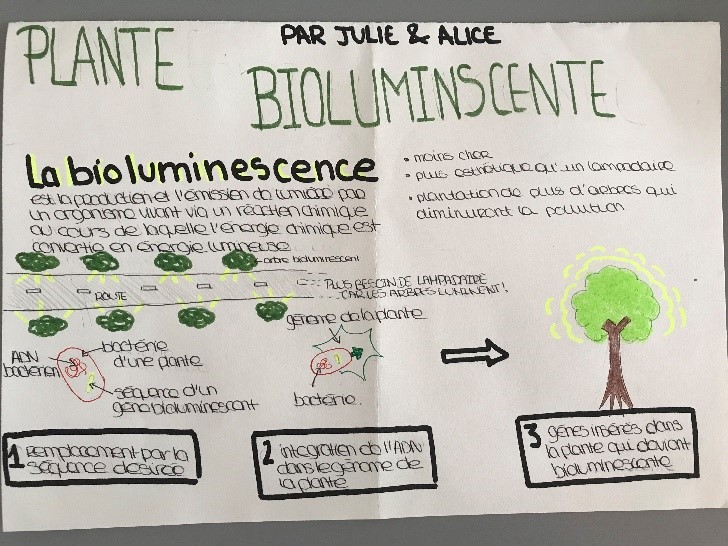 PLANTE
PAR JULIE & ALICE
BIOLUMINSCENTE
La bioluminescence
est la production et l'émission de lumière par
un organisme vivant via un réaction chimique
au cours de laquelle l'énergie chimique est
convertie en énergie lumineuse
• moins cher
• plus esthétique qu'un lampadaire
• plantation de plus d'arbres qui
diminuront la pollution
arbre bioluminescent
ROUTE
PLUS BESOIN DE LAMPADAIRE
CAR LES ARBRES LUMINENT!
ADN
bactérien
bactérie
d'une plante
séquence d'un
gène bioluminescent
génome de la plante
bactérie
1 remplacement par la
séquence désirée
2 intégration de l'ADN
dans le génome de
la plante
3 gènes insérés dans
la plante qui devient
bioluminescente